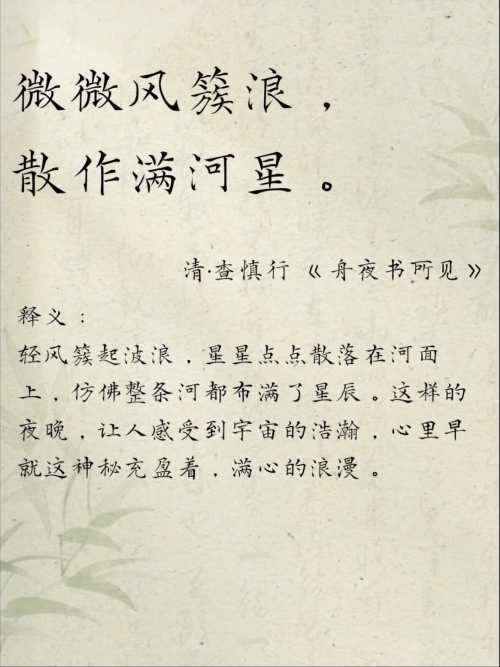 微微风簇浪，
散作满河星。
清·查慎行《舟夜书所见》
释义：
轻风簇起波浪，星星点点散落在河面
上，仿佛整条河都布满了星辰。这样的
夜晚，让人感受到宇宙的浩瀚，心里早
就这神秘充盈着，满心的浪漫。